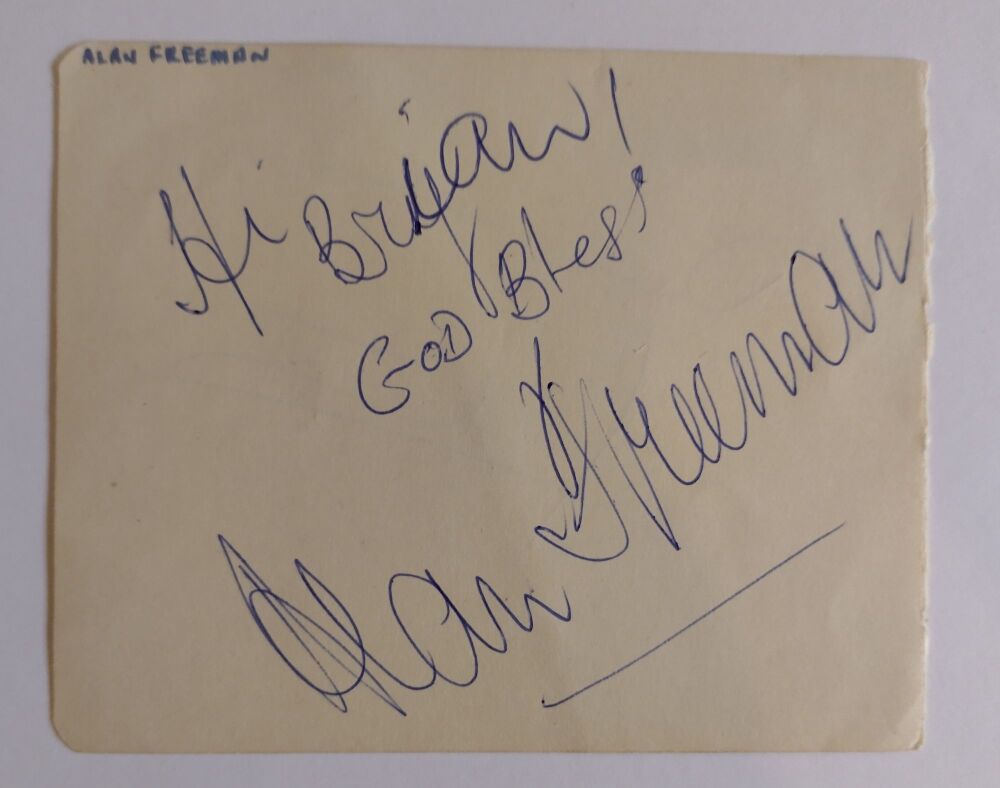 ALAN FREEMAN
Hi Brian!
GOD Bless
Alan Freeman